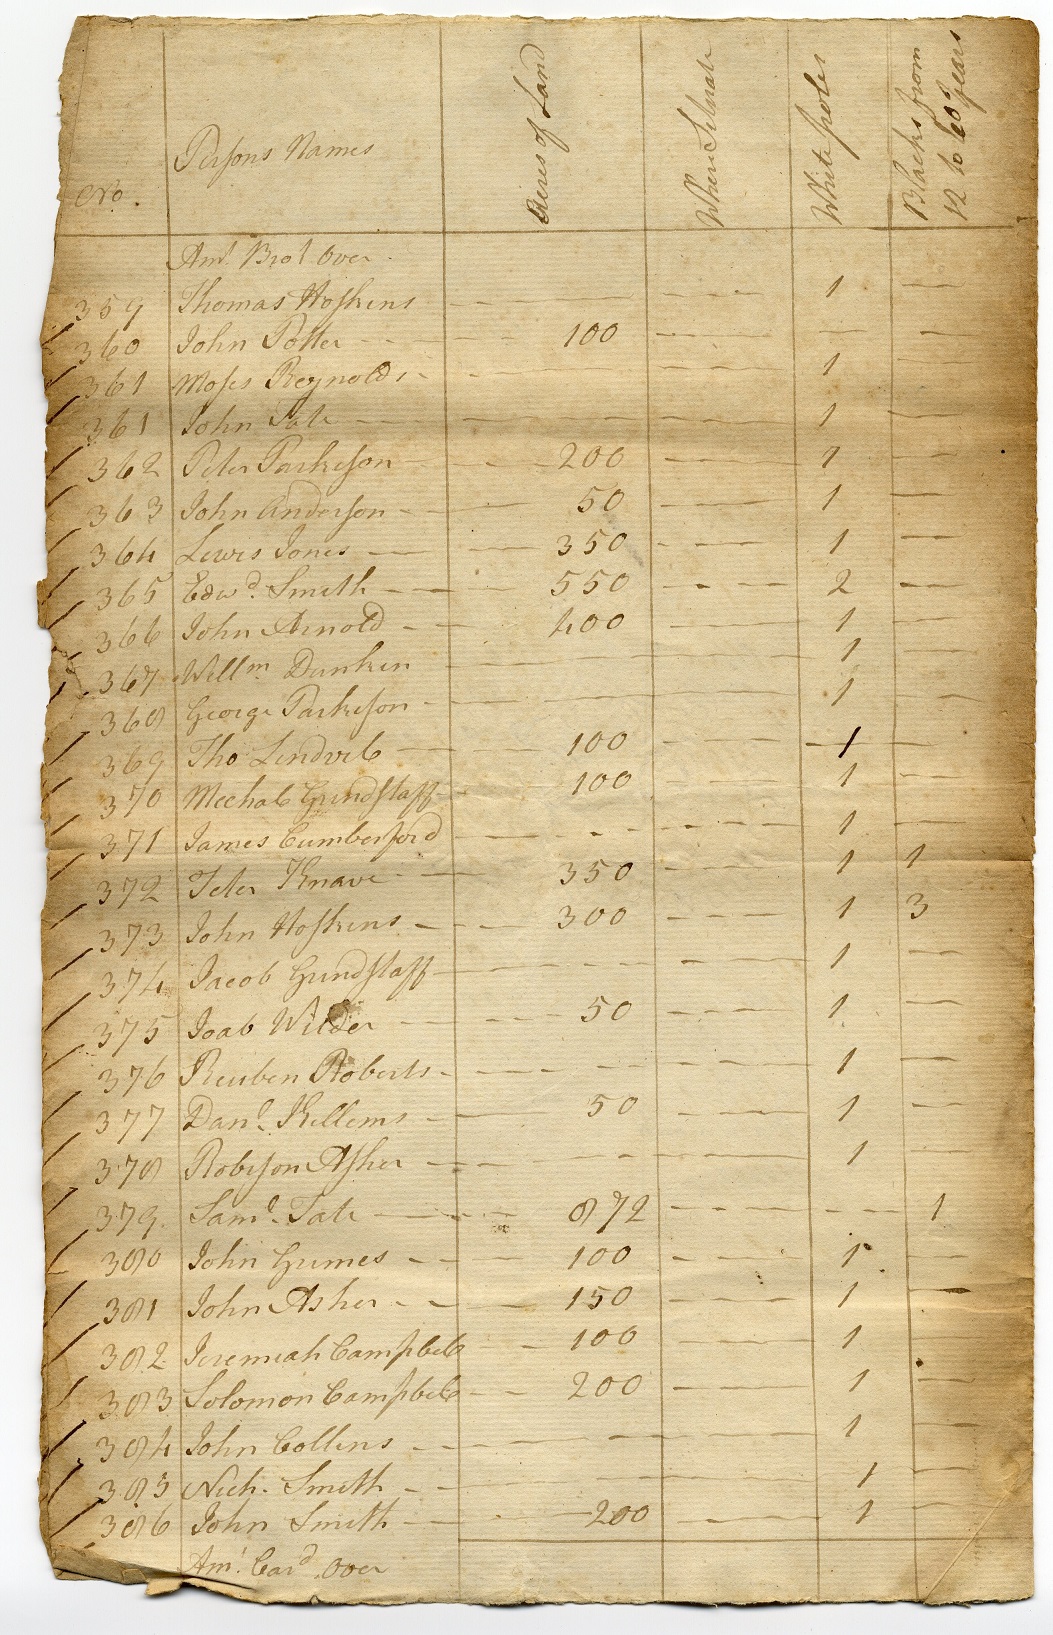 No. Persons Names Acres of Land When Situate White poles Blacks from 12 to 60 Years
Amt. Brot over
359 Thomas Hoskins 1
360 John Potter 100
361 Moses Reynolds 1
361 John Tate 1
362 Peter Parkeson 200 1
363 John Anderson 50 1
364 Lewis Jones 350 1
365 Edwd. Smith 550 2
366 John Arnold 400 1
367 Willm. Dunken 1
368 George Parkeson 1
369 Tho 100 1
370 Mechal Grindstaff 100 1
371 James Cumberford 1
372 Peter Knave 350 1 1
373 John Hoskins 300 1 3
374 Jacob Grindstaff 1
375 Joab Wilder 50 1
376 Reuben Roberts 1
377 Danl. Kellems 50 1
378 Robeson Asher 1
379 Saml. Tate 872 1
380 John Grimes 100 1
381 John Asher 150 1
382 Jeremiah Campbell 100 1
383 Solomon Campbell 200 1
384 John Collins 1
385 Nich. Smith 1
386 John Smith 200 1
Amt. Card. over